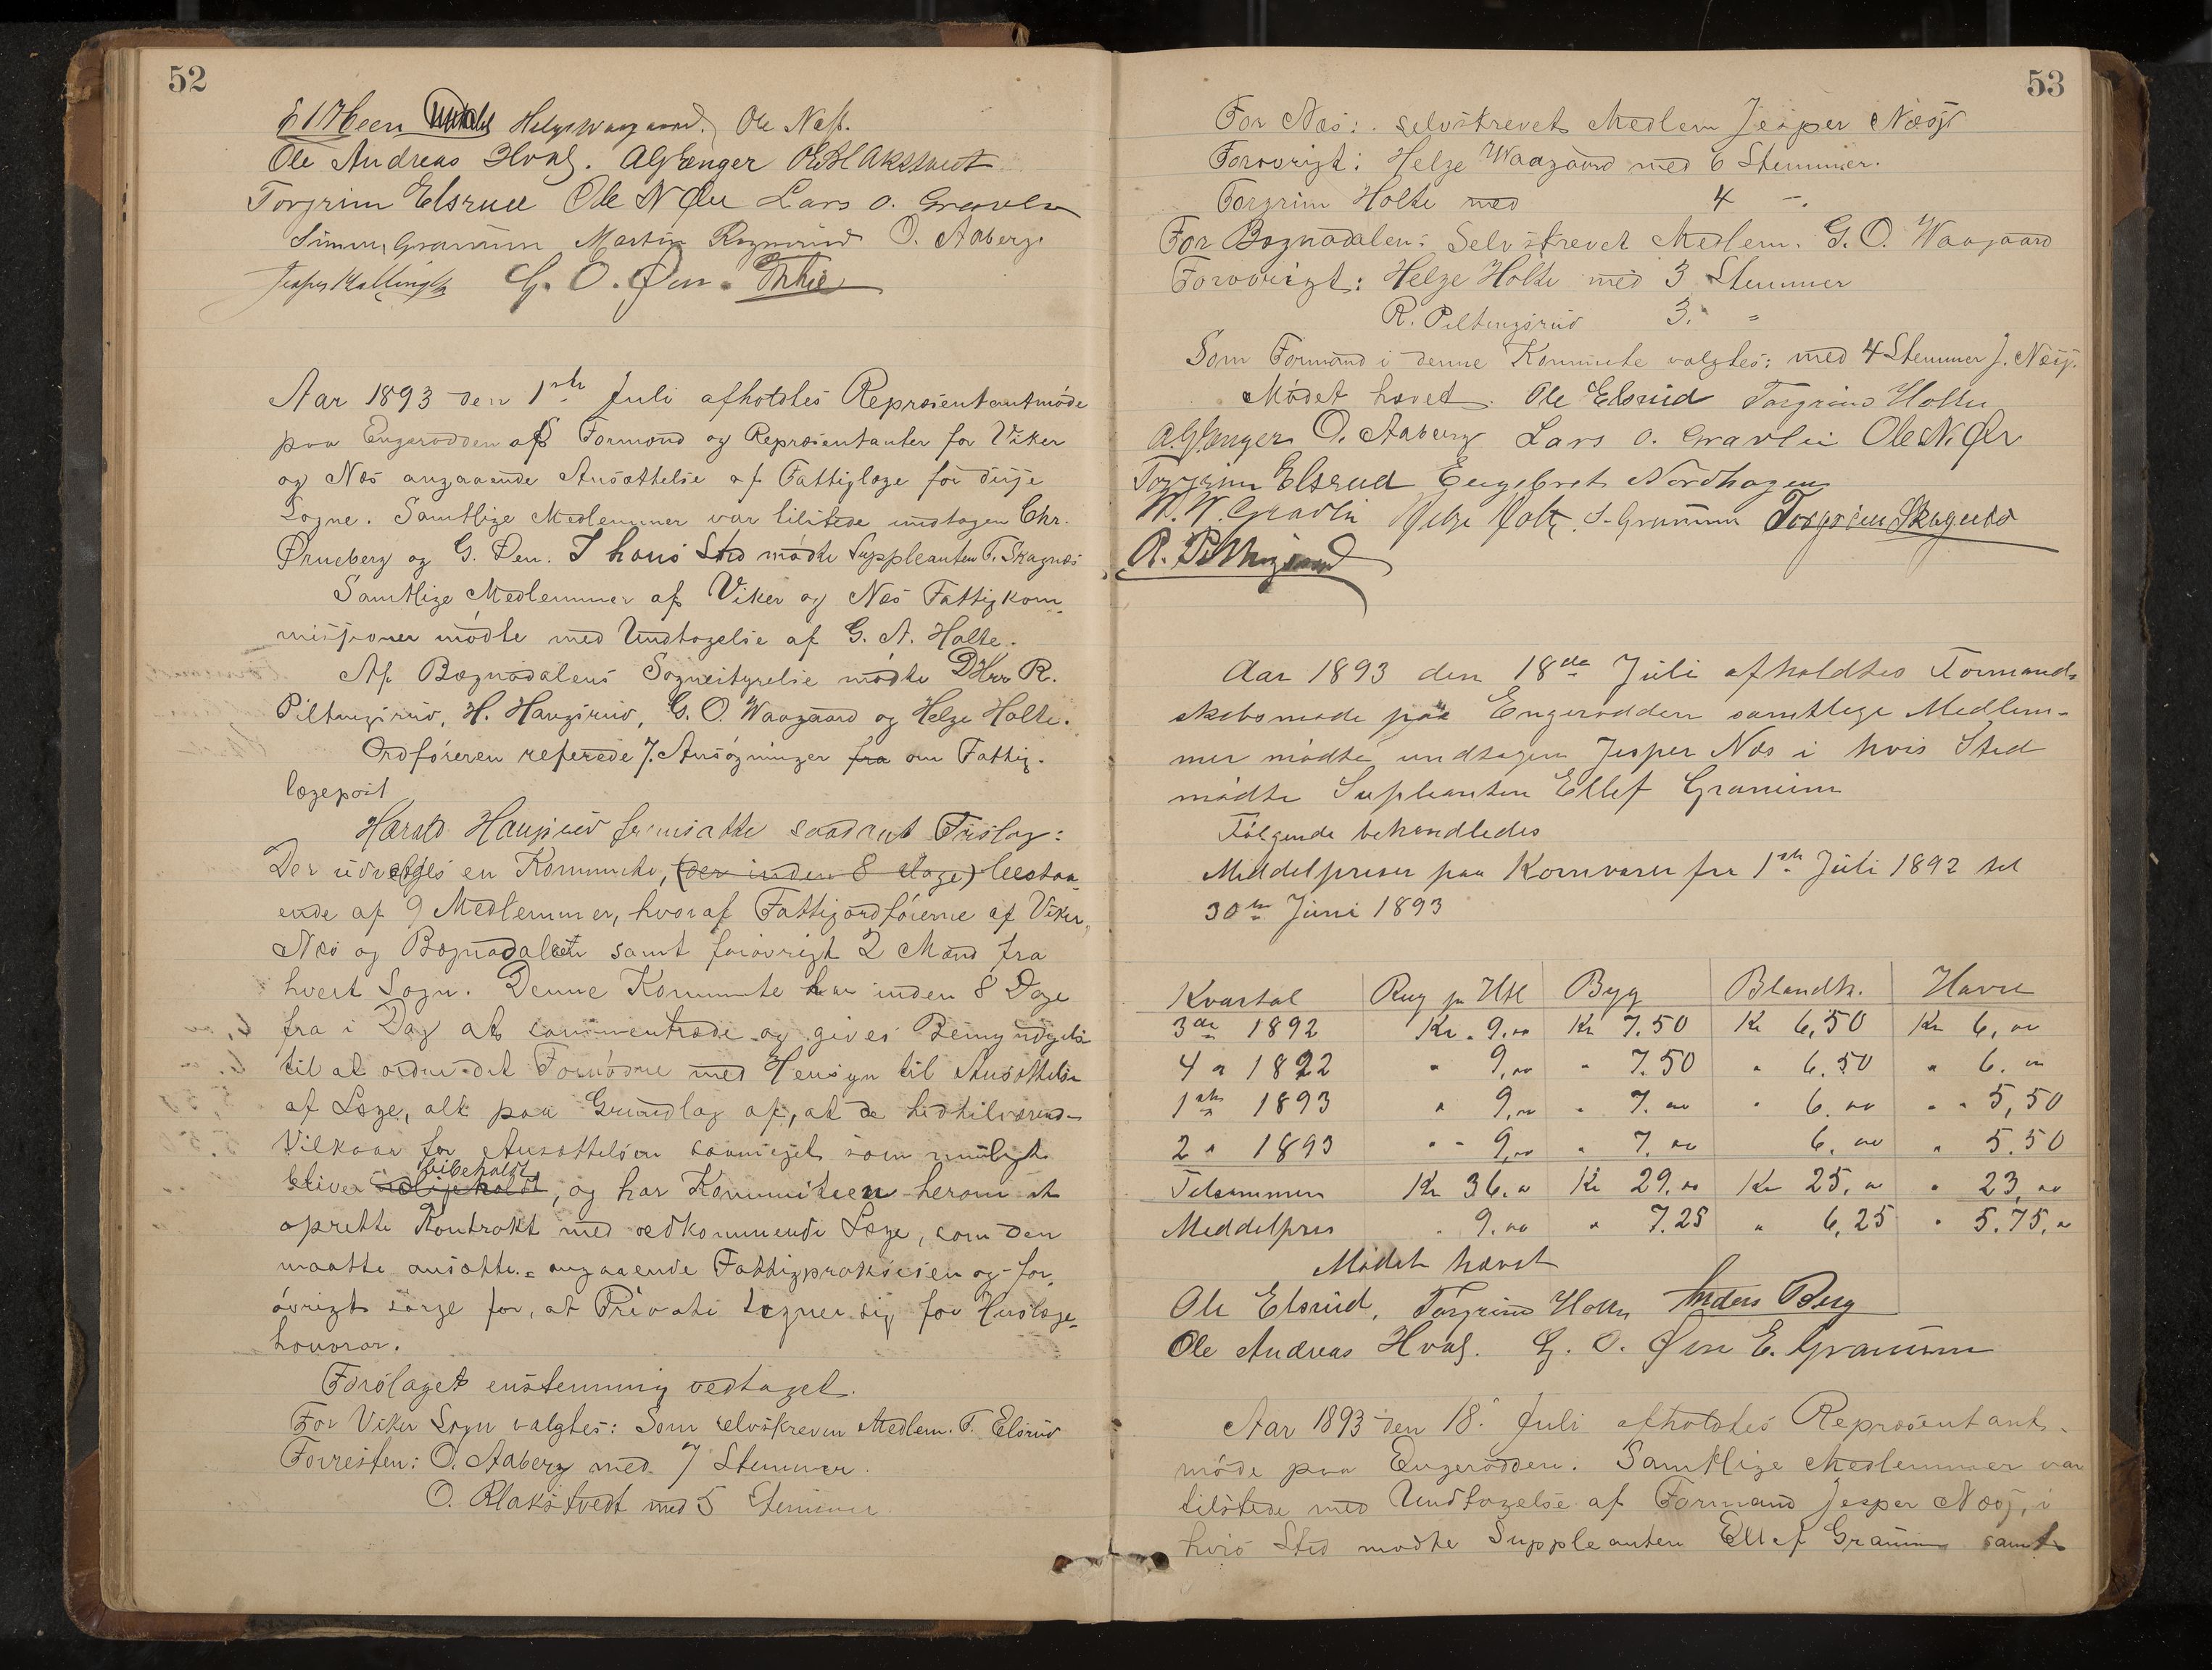 52
Helge Waagaard. Ole Næss.
Ole Andreas Hval. A Gjænger
Torgrim Elsrud Ole N Øen Lars O. Gravlie
Simen Granum Martin O. Aaberg.
G. O. Øen.
Aar 1893 den 1ste Juli afholdtes Repræsentantmøde
paa Engerodden af Formænd og Repræsentanter for Viker
og Næs angaaende Ansættelse af Fattiglæge for disse
Sogne. Samtlige Medlemmer var tilstede undtagen Chr.
Ørneberg og G. Øen. I hans Sted mødte Suppleanten T. Skagnæs
Samtlige Medlemmer af Viker og Næs Fattigkom-
missjoner mødte med Undtagelse af G. A. Holte.
Af Bægnadalens Sognestyrelse mødte DHrr R.
Piltingsrud, H. Haugsrud, G. O. Waagaard og Helge Holte.
Ordføreren referede 7. Ansøgninger fra om Fattig-
lægepost
Harald Haugsrud fremsatte saadant Forslag:
Der udvælges en Kommite, (der inden 8 dage) bestaa-
ende af 9 Medlemmer, hvoraf Fattigordførerne af Viker,
Næs og Bægnadalen samt forøvrigt 2 Mænd fra
hvert Sogn. Denne Kommite har inden 8 Dage
fra i Dag at sammentræde og gives Bemyndigelse
til at ordne det Fornødne med Hensyn til Ansættelse
af Læge, alt paa Grundlag af, at de hidtilværende
Vilkaar for Ansættelsen saavidt som muligt
bibeholdt
bliver , og har Kommiteen herom at
oprette Kontrakt med vedkommende Læge, som den
maatte ansætte angaaende Fattigpraksisen og for-
øvrigt sørge for, at Private tegner sig for Huslæge-
honorar.
Forslaget enstemmig vedtaget.
For Viker Sogn valgtes: Som selvskreven Medlem. T. Elsrud
Forresten: O. Aaberg med 7 Stemmer.
O. Blakstvedt med 5 Stemmer
53
For Næs: selvskrevet Medlem Jesper Næsj
Forøvrigt: Helge Waagaard med 6 Stemmer.
Torgrim Holte med 4 –.
For Bægnadalen: Selvskrevet Medlem. G. O. Waagaard
Forøvrigt: Helge Holte med 3 Stemmer
R. Piltingsrud 3. =
Som Formand i denne Kommite valgtes: med 4 Stemmer J. Næsj.
Mødet hævet. Ole Elsrud Torgrim Holte
A Gjænger O. Aaberg Lars O. Gravlie Ole N. Øen
Torgrim Elsrud Engebret Nordhagen
Gravli Helge Holte S. Granum Torgrim Skagnæs
R. Piltingsrud
Aar 1893 den 18de Juli afholdtes Formand-
skabsmøde paa Engerodden samtlege Medlem-
mer mødte undtagen Jesper Næs i hvis Sted
mødte Supleanten Ellef Granum
Følgende behandledes
Middelpriser paa Kornvarer fra 1ste Juli 1892 til
30te Juni 1893
Kvartal Rug pr Htl Byg Blandk. Havre
3de 1892 Kr. 9,00 Kr 7.50 Kr 6,50 Kr 6,00
4 " 1892 " 9,00 " 7.50 " 6.50 " 6.00
1ste 1893 " 9,00 " 7.00 " 6.00 " " 5,50
2 " 1893 " " 9,00 " 7.00 6.00 " 5.50
Tilsammen Kr 36.00 Kr 29.00 Kr 25,00 " 23,00
Middelpris " 9.00 " 7.25 " 6,25 " 5.75,"
Mødet hævet
Ole Elsrud, Torgrim Holte Anders Berg
Ole Andreas Hval. G. O. Øen E. Granum
Aar 1893 den 18. Juli afholdtes Repræsentant-
møde paa Engerodden. Samtlige Medlemmer var
tilstede med Undtagelse af Formand Jesper Næsj, i
hvis Sted mødte Suppleanten Ellef Granum samt